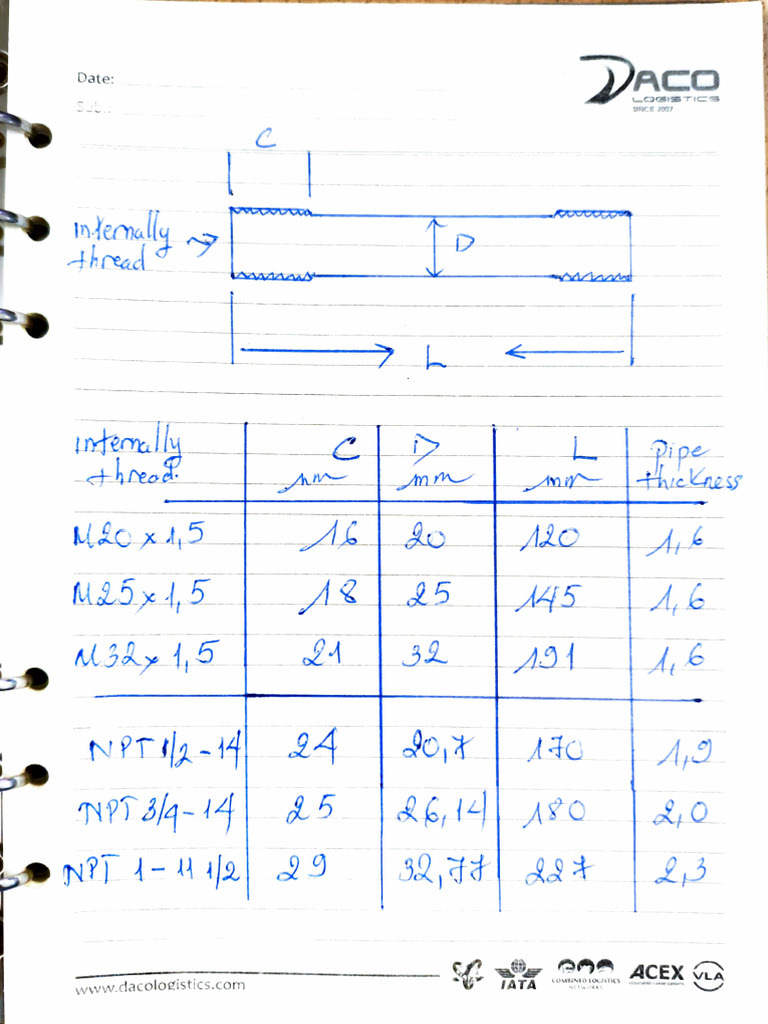 Date:
DACO
LOGISTICS
SINCE 2007
C
Internally
thread
D
L
Internally
thread
C
mm
D
mm
L
mm
pipe
thickness
M20 x 1,5 16 20 120 1,6
M25 x 1,5 18 25 145 1,6
M32 x 1,5 21 32 191 1,6
NPT 1/2 - 14 24 20,7 170 1,9
NPT 3/4 - 14 25 26,14 180 2,0
NPT 1 - 11 1/2 29 32,77 227 2,3
www.dacologistics.com
IATA
COMBINED LOGISTICS
NETWORKS
ACEX
VLA